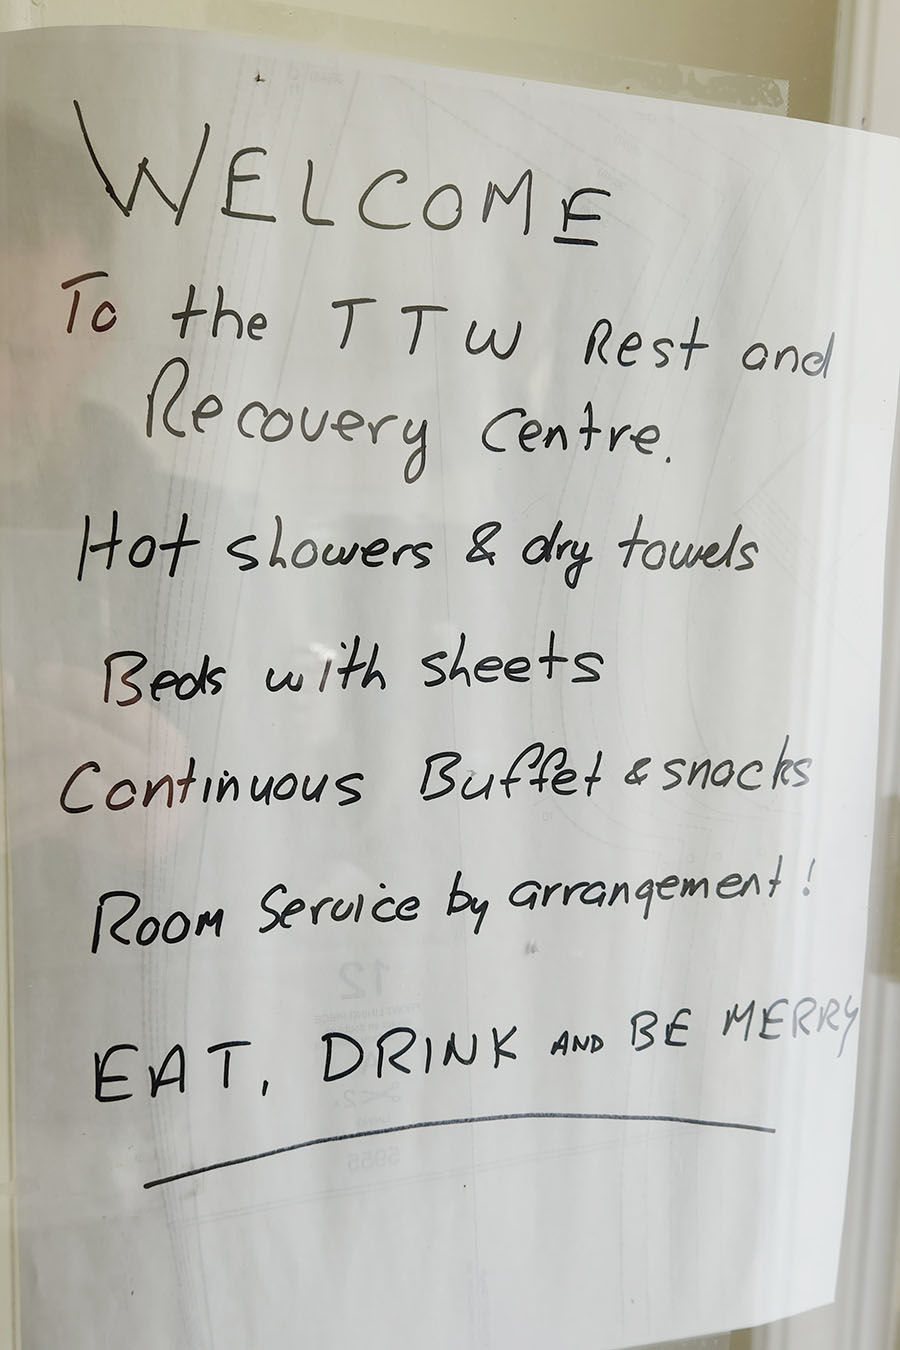 WELCOME
To the TTW Rest and
Recovery Centre.
Hot showers & dry towels
Beds with sheets
Continuous Buffet & snacks
Room Service by arrangement!
EAT, DRINK AND BE MERRY
12
5955